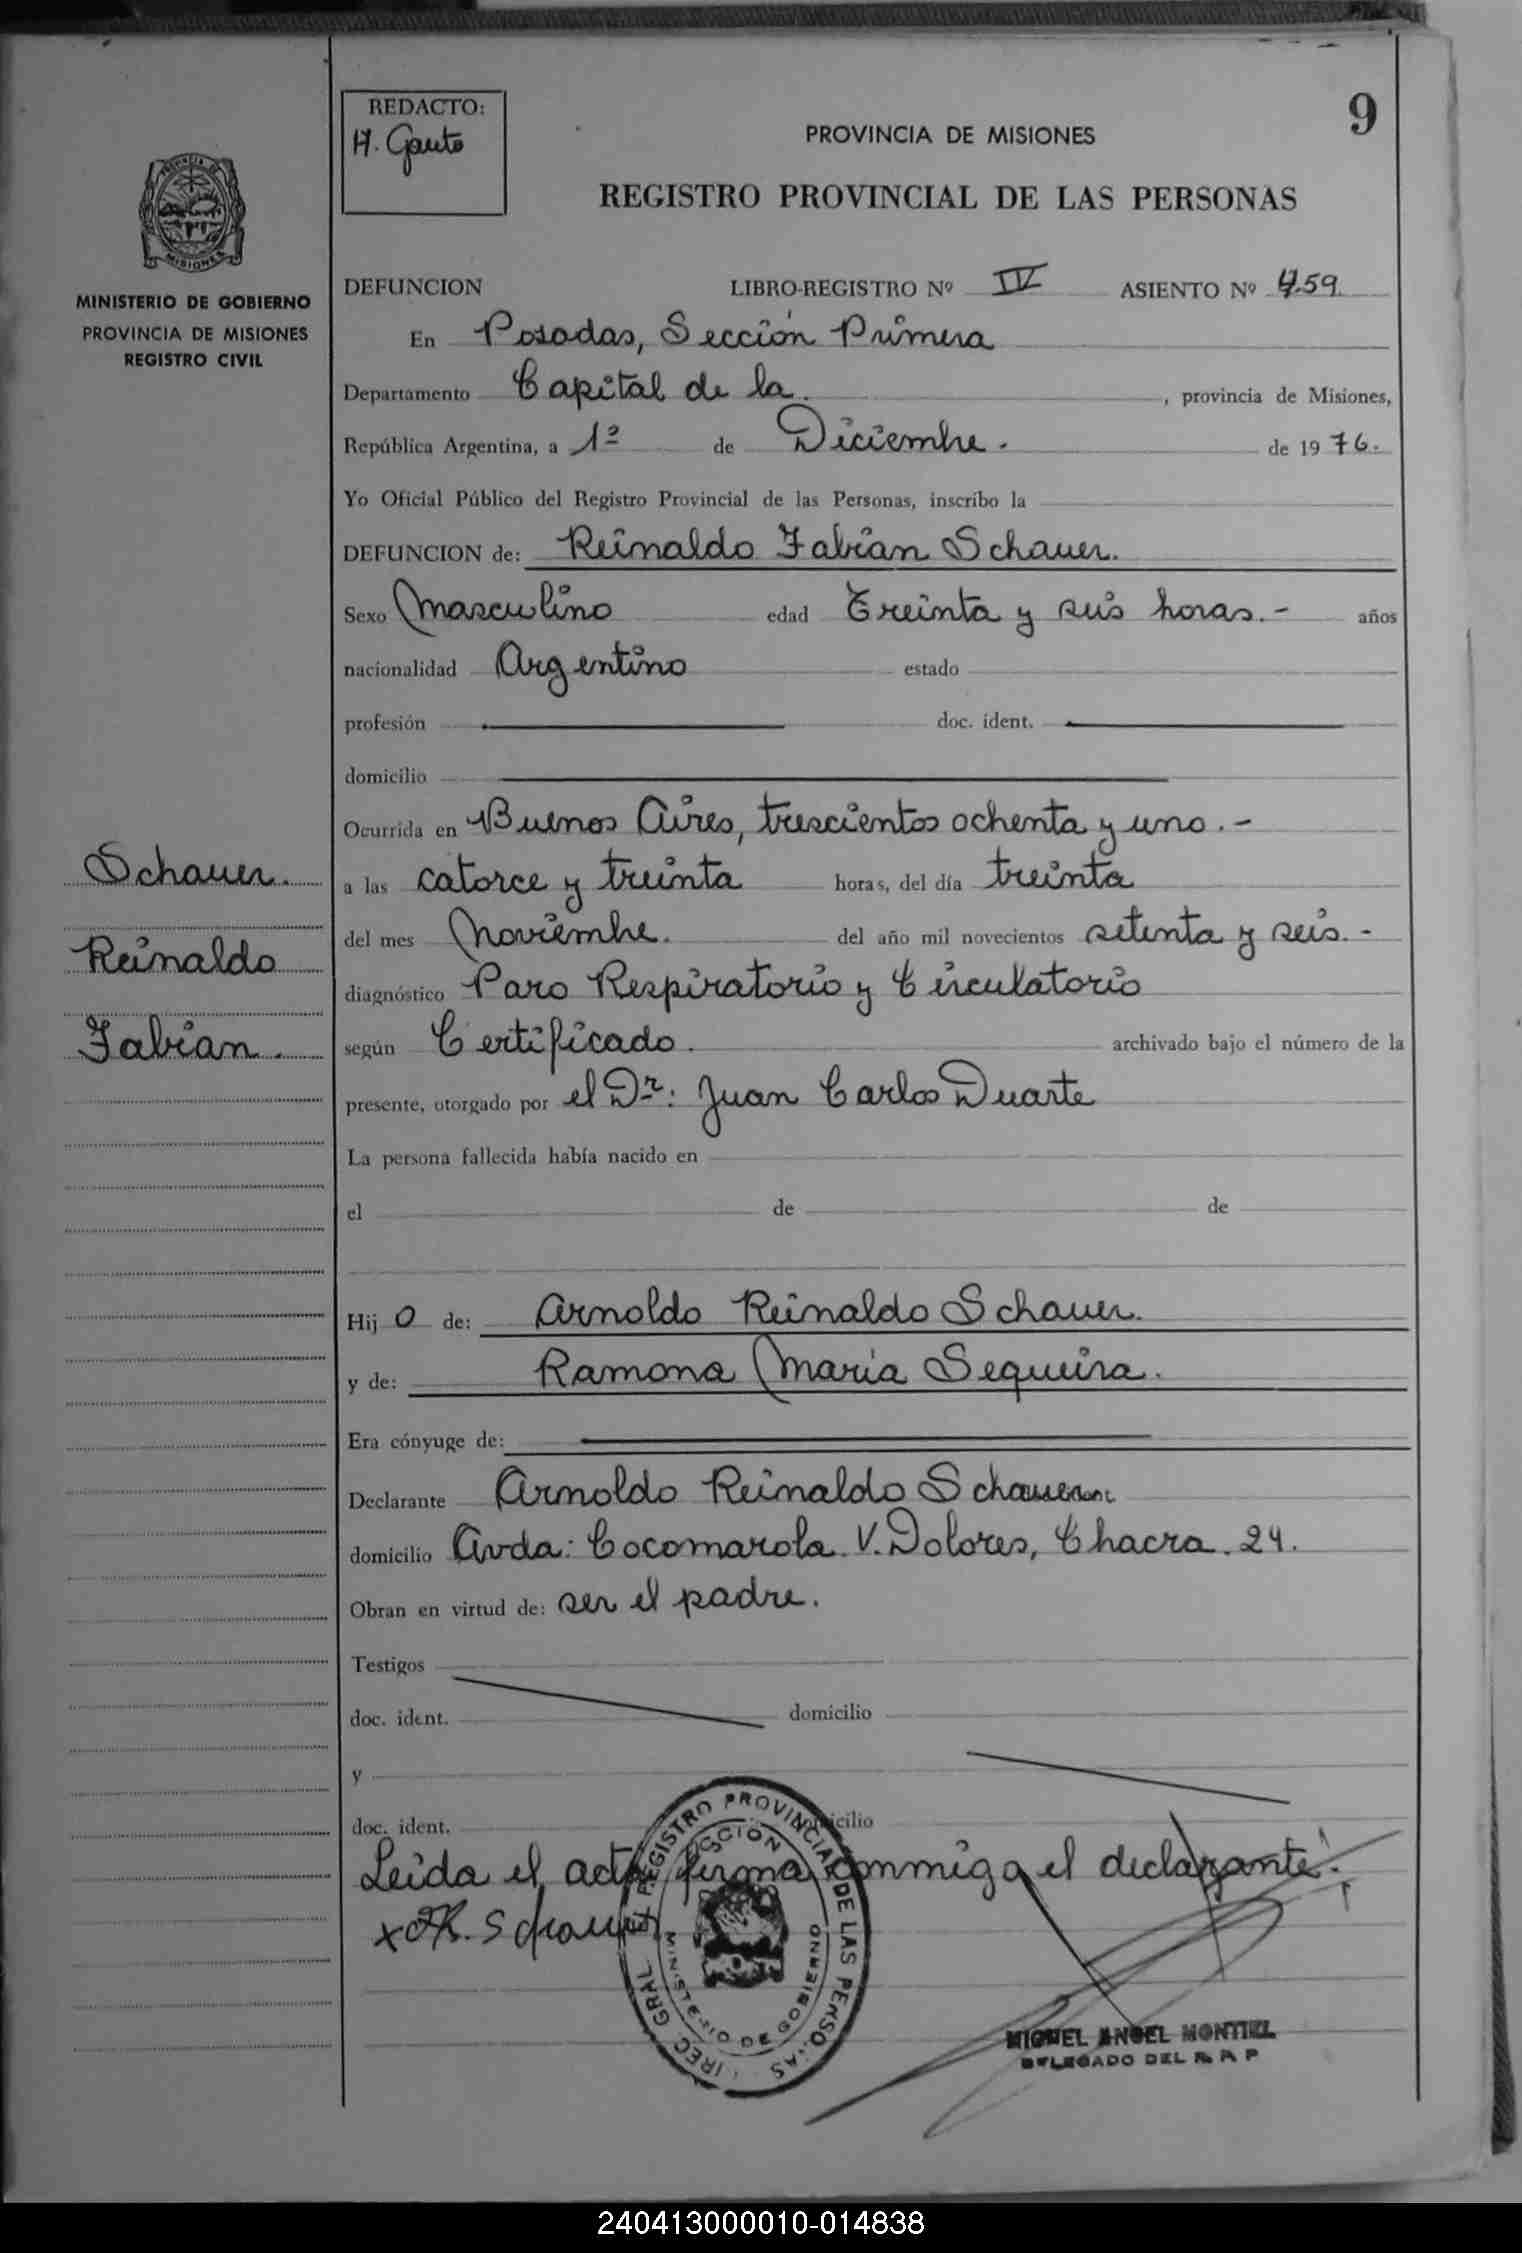 REDACTO:
H. Gauto
9
PROVINCIA DE MISIONES
REGISTRO PROVINCIAL DE LAS PERSONAS
PROVINCIA DE
MISIONES
MINISTERIO DE GOBIERNO
PROVINCIA DE MISIONES
REGISTRO CIVIL
DEFUNCION LIBRO-REGISTRO Nº IV ASIENTO Nº 459
En Posadas, Sección Primera
Departamento Capital de la , provincia de Misiones,
República Argentina, a 1º de Diciembre. de 1976.
Yo Oficial Público del Registro Provincial de las Personas, inscribo la
DEFUNCION de: Reinaldo Fabian Schauer.
Sexo Masculino edad Treinta y seis horas.- años
nacionalidad Argentino estado
profesión doc. ident.
domicilio
Ocurrida en Buenos Aires, trescientos ochenta y uno.-
Schauer.
a las catorce y treinta horas, del día treinta
Reinaldo
del mes Noviembre. del año mil novecientos setenta y seis.-
diagnóstico Paro Respiratorio y Circulatorio
Fabian.
según Certificado. archivado bajo el número de la
presente, otorgado por el Dr: Juan Carlos Duarte
La persona fallecida había nacido en
el de de
Hij o de: Arnoldo Reinaldo Schauer.
y de: Ramona Maria Sequeira.
Era cónyuge de:
Declarante Arnoldo Reinaldo Schauer
domicilio Avda: Cocomarola V. Dolores, Chacra. 24.
Obran en virtud de: ser el padre.
Testigos
doc. ident. domicilio
y
doc. ident. domicilio
Leida el acta firma conmigo el declarante.
x AR. Schauer
DIREC GRAL REGISTRO PROVINCIAL DE LAS PERSONAS
MINISTERIO DE GOBIERNO
MIGUEL ANGEL MONTIEL
DELEGADO DEL R. P. P
240413000010-014838